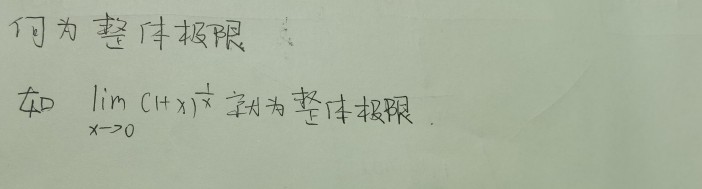 何为整体极限
如 lim x->0 (1+x)^(1/x) 就为整体极限.